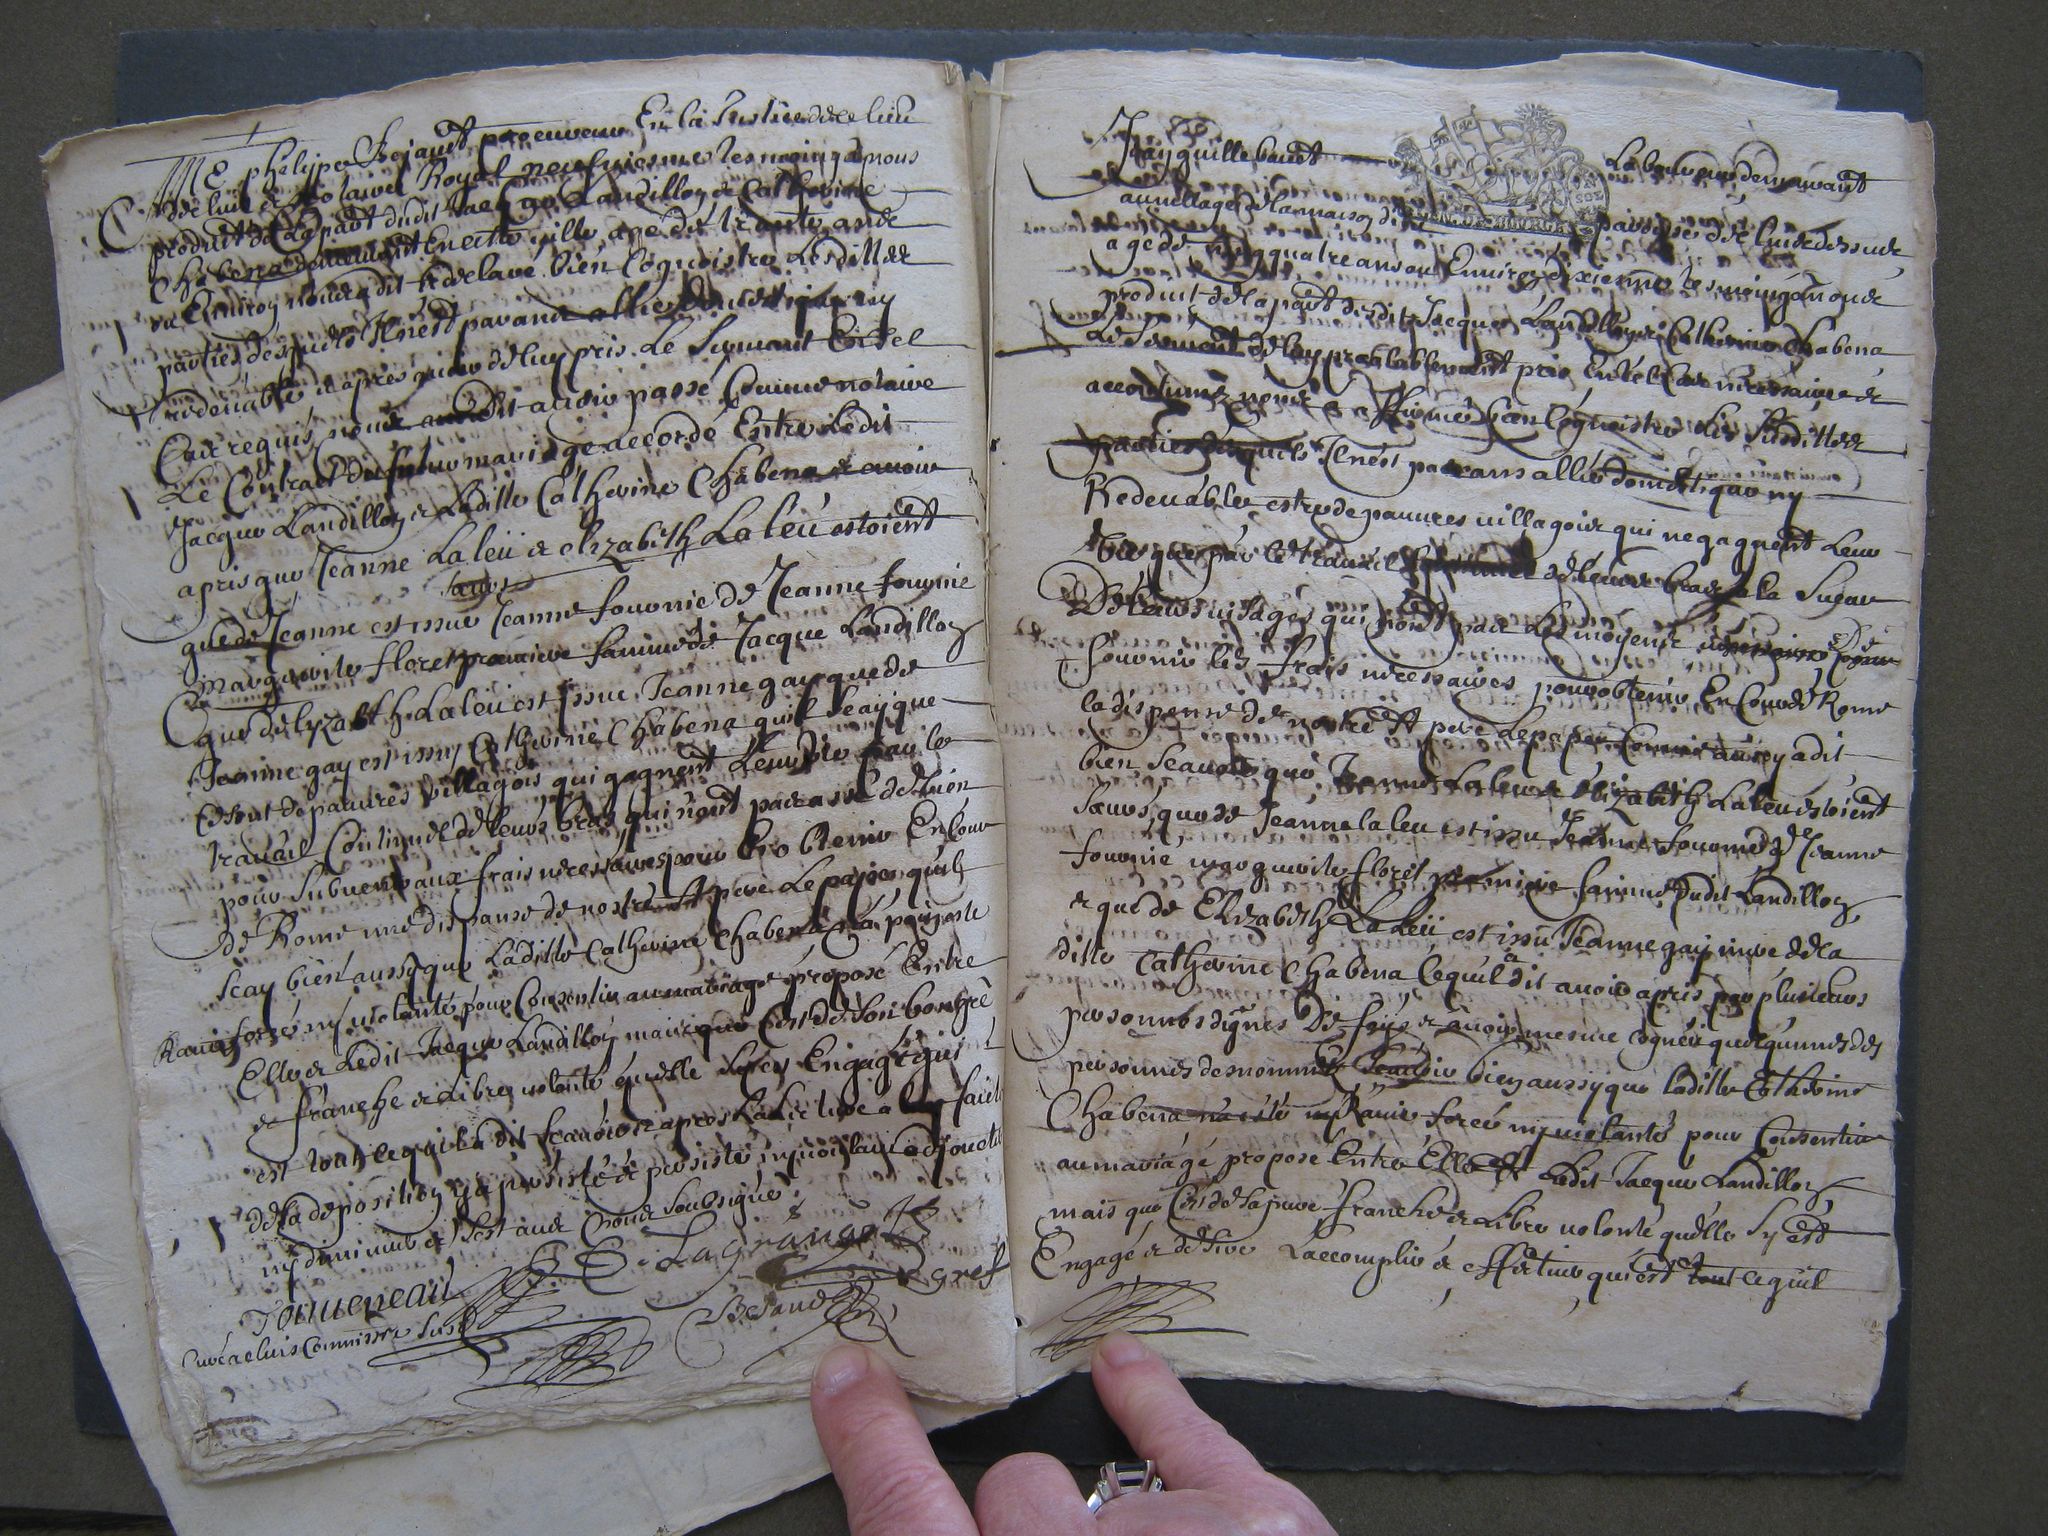 Me phelype Bejaud procureur En la Justice de ce lieu
de luis et Notaire Royal neufviesme tesmoing a nous
produit de la part dudit Jacque Landillon et Catherine
Chabena demeurant En cette ville age de trante ans
ou Environ nous a dit et declaré bien Cognoistre Lesdittes
parties desquels Il nest parant allié domestique ny
redevable et apres avoir de luy pris Le Serment En tel
Cas requis nous a dit avoir passé Comme notaire
Le Contract du futur mariage accordé Entre Ledit
Jacque Landillon et Laditte Catherine Chabena et avoir
apris que Jeanne Laleu et Elizabeth Laleu estoient
Sœurs
que de Jeanne est issue Jeanne fournie de Jeanne fournie
marguerite floret premiere famme de Jacque Landillon
que delyzabeth Laleu est issue Jeanne gay que de
Jeanne gay est issu Catherine Chabena quil Sçay que
Ce sont de pauvres villagois qui gagnent Leur vie par le
travail Continuel de leurs bras qui nont pas assé de bien
pour Subvenir aux frais necessaires pour En obtenir En Cour
de Rome une dispanse de nostre St pere Le pape quil
Sçay bien aussy que Laditte Catherine Chabena na point esté
Ravie forzée ny violantée pour Consentir au mariage proposé Entre
Elle et Ledit Jacque Landillon mais que Cest de son bon gré
et franche et Libre volonté quelle Sy est Engagé qui
est tout ce quil a dit Scavoir et apres Lecture a luy faicte
de sa deposition y a persisté et persiste ny voulant adjouter
ny diminuer et Sest avec nous Soubsigné
E. Lagrange
gref
Touueneau
Bejaud
Curé de luis Commissre Susd
Jean guillebaud Laboureur demeurant
au village de la maison paroisse de luis
GEN. DE BOURGES
age de quatre ans ou Environ dixiesme tesmoing a nous
produit de la part desdits Jacque Landillon et Catherine Chabena
Le Serment de luy prealablement pris En tel Cas necessaire et
accoutumé nous a affirmé bien Cognoistre les Susdittes
parties desquels Il nest parans allié domestique ny
Redevable estre de pauvres villagois qui ne gagnent Leur
vie que par le travail de leurs bras et la Sueur
De leurs visages qui nont pas Les moyens De
fournir les frais necessaires pour obtenir En Cour de Rome
la dispense de nostre St pere Le pape Comme aussy a dit
bien Scavoir que Jeanne Laleu et Elizabeth Laleu estoient
Sœurs, que de Jeanne laleu est issu Jeanne fournie de Jeanne
fournie, marguerite floret premiere famme dudit Landillon,
et que de Elizabeth Laleu est issu Jeanne gay mere de la
ditte Catherine Chabena Ce quil a dit avoir apris par plusieurs
personnes dignes De foy et avoir mesme cogneu quelqunnes des
personnes desnommés Scavoir bien aussy que laditte Catherine
Chabena na esté ny Ravie forcée ny violantée pour Consentir
au mariage proposé Entre Elle et Ledit Jacque Landillon,
mais que Cest de sa pure franche et Libre volonté quelle Sy est
Engagé et desire Laccomplir et effectuer qui est tout ce quil